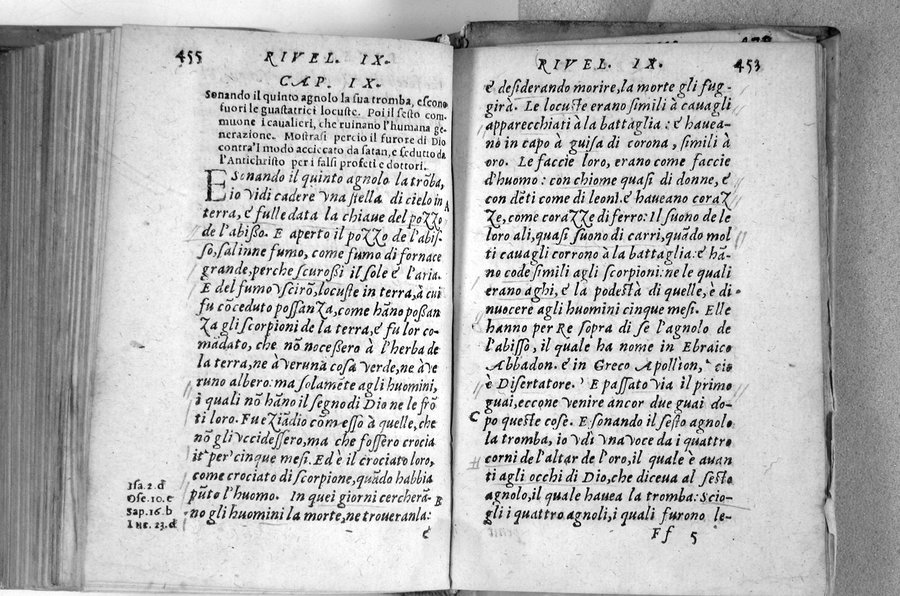 455 RIVEL. IX.
CAP. IX.
Sonando il quinto agnolo la sua tromba, escono
fuori le guastatrici locuste. Poi il sesto com
muone i caualieri, che ruinano l'humana ge
nerazione. Mostrasi percio il furore di Dio
contra'l modo acciecato da satan, e sedutto da
l'Antichristo per i falsi profeti e dottori.
E Sonando il quinto agnolo la trõba,
io vidi cadere vna stella di cielo in
terra, é fulle data la chiaue del pozzo
de l'abisso. E aperto il pozzo de l'abis-
so, salinne fumo, come fumo di fornace
grande, perche scurossi il sole é l'aria.
E del fumo vscirõ, locuste in terra, à cui
fu cõceduto possanza, come hãno possan
za gli scorpioni de la terra, é fu lor co-
mãdato, che nõ nocessero à l'herba de
la terra, ne à veruna cosa verde, ne à ve
runo albero: ma solamẽte agli huomini,
i quali nõ hãno il segno di Dio ne le frõ
ti loro. Fue ziãdio comesso à quelle, che
nõ gli vccidessero, ma che fossero crocia
ti per cinque mesi. Ed è il crociato loro,
come crociato di scorpione, quãdo habbia
pũto l'huomo. In quei giorni cercherã-
no gli huomini la morte, ne troueranla:
é
A
B
Isa. 2. d
Ose. 10. c
Sap. 16. b
Luc. 23. d
RIVEL. IX. 453
é desiderando morire, la morte gli fug-
girà. Le locuste erano simili à cauagli
apparecchiati à la battaglia: é hauea-
no in capo à guisa di corona, simili à
oro. Le faccie loro, erano come faccie
d'huomo: con chiome quasi di donne, é
con dẽti come di leoni. é haueano coraz
ze, come corazze di ferro: Il suono de le
loro ali, quasi suono di carri, quãdo mol
ti cauagli corrono à la battaglia: é hã-
no code simili agli scorpioni: ne le quali
erano aghi, é la podestà di quelle, è di
nuocere agli huomini cinque mesi. Elle
hanno per Re sopra di se l'agnolo de
l'abisso, il quale ha nome in Ebraico
Abbadon. é in Greco Apollion, cio
è Disertatore. E passato via il primo
guai, eccone venire ancor due guai do-
po queste cose. E sonando il sesto agnolo
la tromba, io vdì vna voce da i quattro
corni de l'altar de l'oro, il quale è auan
ti agli occhi di Dio, che diceua al sesto
agnolo, il quale hauea la tromba: Scio-
gli i quattro agnoli, i quali furono le-
C
Ff 5